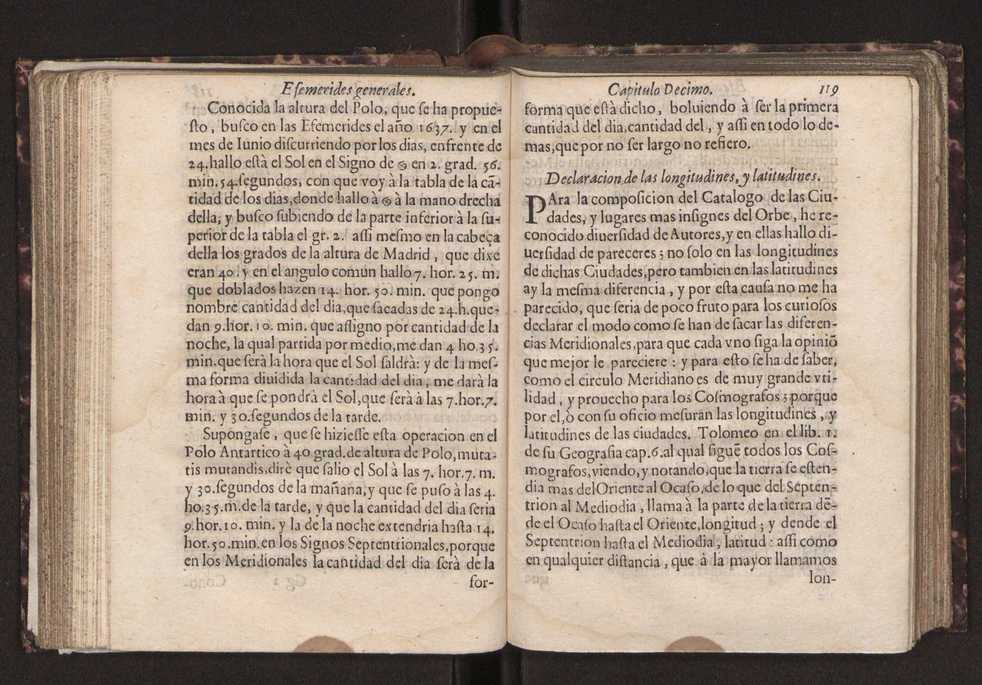 Efemerides generales.
Conocida la altura del Polo, que se ha propue-
sto, busco en las Efemerides el año 1637. y en el
mes de Iunio discurriendo por los dias, enfrente de
24.hallo està el Sol en el Signo de ♋ en 2. grad. 56.
min.54.segundos, con que voy à la tabla de la cã-
tidad de los dias,donde hallo à ♋ à la mano drecha
della, y busco subiendo de la parte inferior à la su-
perior de la tabla el gr. 2. assi mesmo en la cabeça
della los grados de la altura de Madrid, que dixe
eran 40. y en el angulo común hallo 7. hor. 25. m.
que doblados hazen 14. hor. 50. min. que pongo
nombre cantidad del dia,que sacadas de 24.h.que-
dan 9.hor.10. min. que assigno por cantidad de la
noche, la qual partida por medio,me dan 4 ho.35.
min.que serà la hora que el Sol saldrà: y de la mes-
ma forma diuidida la cantidad del dia, me darà la
hora à que se pondrà el Sol,que serà à las 7.hor.7.
min. y 30.segundos de la tarde.
Supongase, que se hiziesse esta operacion en el
Polo Antartico à 40 grad.de altura de Polo,muta-
tis mutandis.dirè que salio el Sol à las 7. hor.7. m.
y 30.segundos de la mañana,y que se puso à las 4.
ho.35.m.de la tarde, y que la cantidad del dia seria
9.hor.10. min. y la de la noche extendria hasta 14.
hor.50.min.en los Signos Septentrionales,porque
en los Meridionales la cantidad del dia serà de la
for-
Capitulo Decimo. 119
forma que està dicho, boluiendo à ser la primera
cantidad del dia,cantidad del, y assi en todo lo de-
mas,que por no ser largo no refiero.
Declaracion de las longitudines, y latitudines.
PAra la composicion del Catalogo de las Ciu-
dades, y lugares mas insignes del Orbe, he re-
conocido diuersidad de Autores,y en ellas hallo di-
uersidad de pareceres; no solo en las longitudines
de dichas Ciudades,pero tambien en las latitudines
ay la mesma diferencia, y por esta causa no me ha
parecido, que seria de poco fruto para los curiosos
declarar el modo como se han de sacar las diferen-
cias Meridionales,para que cada vno siga la opinió
que mejor le pareciere: y para esto se ha de saber,
como el circulo Meridiano es de muy grande vti-
lidad, y prouecho para los Cosmografos; porque
por el,ò con su oficio mesuran las longitudines, y
latitudines de las ciudades. Tolomeo en el lib. 1.
de su Geografia cap.6.al qual siguẽ todos los Cos-
mografos,viendo,y notando,que la tierra se esten-
dia mas del Oriente al Ocaso,de lo que del Septen-
trion al Mediodia, llama à la parte de la tierra dẽ-
de el Ocaso hasta el Oriente,longitud; y dende el
Septentrion hasta el Mediodia, latitud: assi como
en qualquier distancia, que à la mayor llamamos
lon-